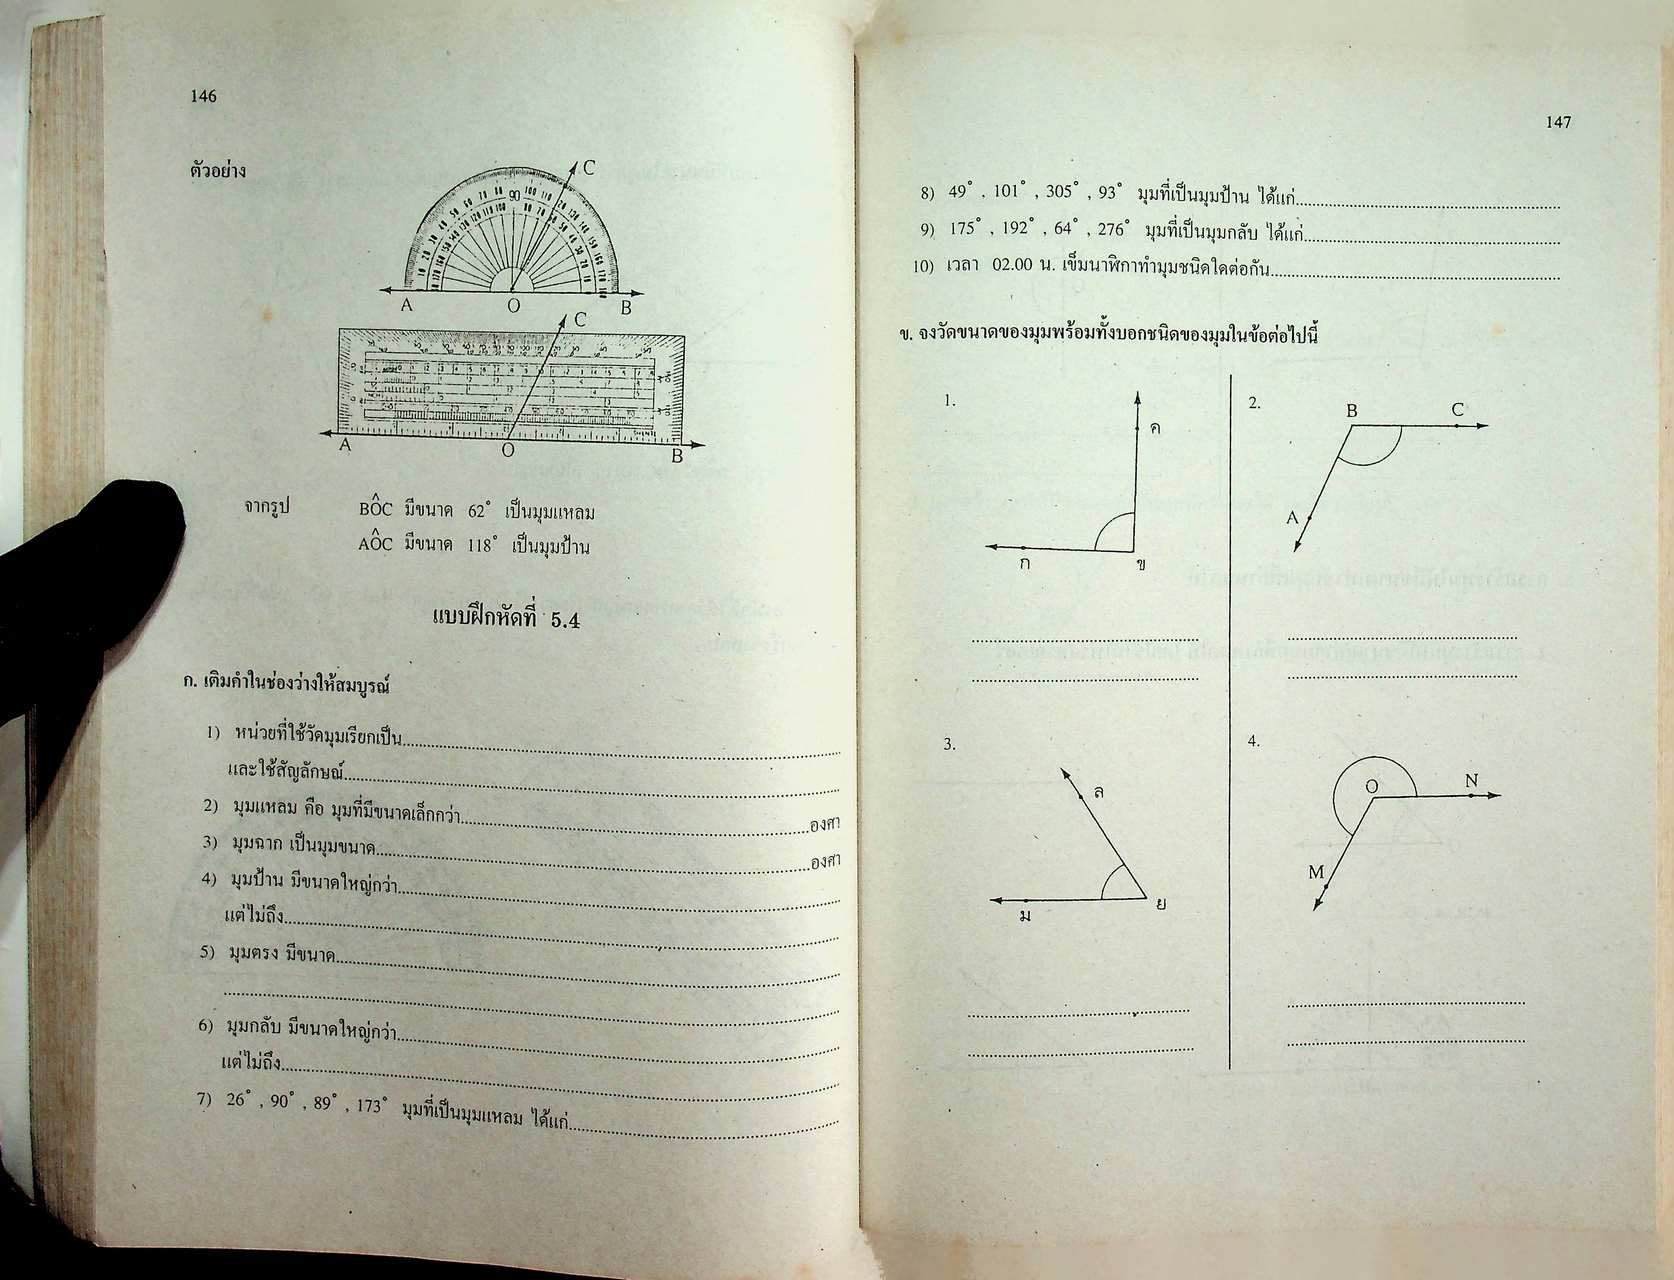 146
ตัวอย่าง
C
A O B
C
A O B
จากรูป BÔC มีขนาด 62° เป็นมุมแหลม
AÔC มีขนาด 118° เป็นมุมป้าน
แบบฝึกหัดที่ 5.4
ก. เติมคำในช่องว่างให้สมบูรณ์
1) หน่วยที่ใช้วัดมุมเรียกเป็น
และใช้สัญลักษณ์
2) มุมแหลม คือ มุมที่มีขนาดเล็กกว่า องศา
3) มุมฉาก เป็นมุมขนาด องศา
4) มุมป้าน มีขนาดใหญ่กว่า
แต่ไม่ถึง
5) มุมตรง มีขนาด
6) มุมกลับ มีขนาดใหญ่กว่า
แต่ไม่ถึง
7) 26° , 90° , 89° , 173° มุมที่เป็นมุมแหลม ได้แก่
147
8) 49° , 101° , 305° , 93° มุมที่เป็นมุมป้าน ได้แก่
9) 175° , 192° , 64° , 276° มุมที่เป็นมุมกลับ ได้แก่
10) เวลา 02.00 น. เข็มนาฬิกาทำมุมชนิดใดต่อกัน
ข. จงวัดขนาดของมุมพร้อมทั้งบอกชนิดของมุมในข้อต่อไปนี้
1.
ค
ก ข
2.
B C
A
3.
ล
ม ย
4.
O N
M